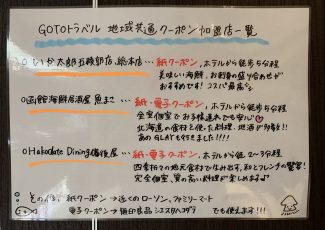 GOTOトラベル 地域共通クーポン加盟店一覧
○いか太郎五稜郭店、総本店 … 紙クーポン、ホテルから徒歩5分程
美味しい海鮮、お刺身の盛り合せが
おすすめです! コスパ最高
○函館海鮮居酒屋 魚まさ … 紙・電子クーポン、ホテルから徒歩5分程
完全個室でお子様連れでも安心
北海道の食材を使った料理、地酒が多数!!
あのGLAYも来られました!!!!
○Hakodate Dining備後屋 … 紙・電子クーポン、ホテルから徒歩2~3分程
四季折々の地元食材で生み出す、和とフレンチの饗宴!
完全個室、質の高い料理が楽しめます
その他、紙クーポン→近くのローソン、ファミリーマート
電子クーポン→無印良品 シエスタハコダテ でも使えます!!!